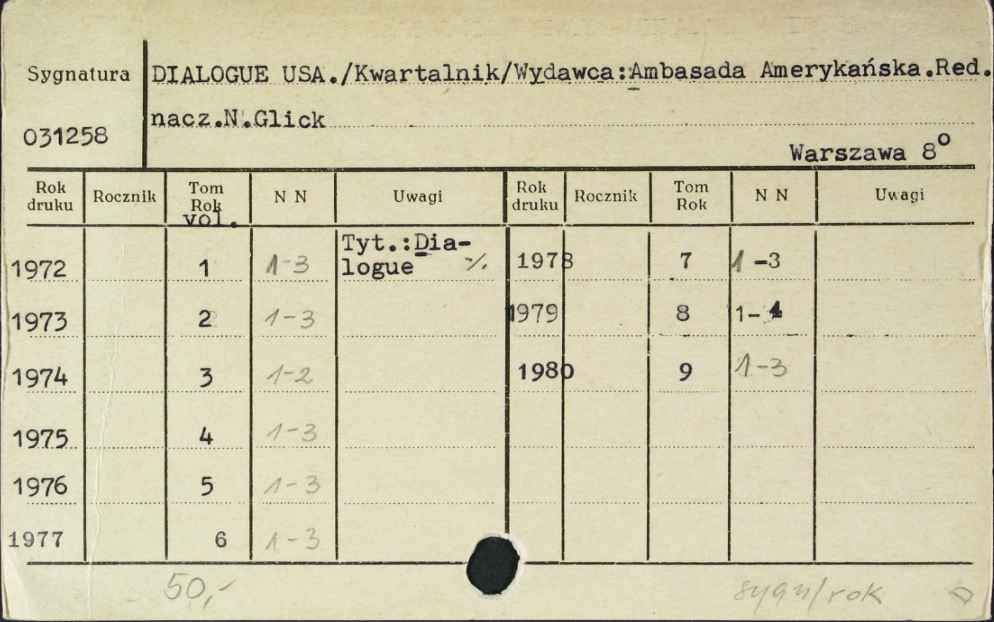 Sygnatura DIALOGUE USA./Kwartalnik/Wydawca:Ambasada Amerykańska.Red.
031258 nacz.N.Glick
Warszawa 8⁰
Rok druku Rocznik Tom Rok vol. N N Uwagi Rok druku Rocznik Tom Rok N N Uwagi
1972 1 1-3 Tyt.:Dia-
logue ·/. 1978 7 1-3
1973 2 1-3 1979 8 1-4
1974 3 1-2 1980 9 1-3
1975 4 1-3
1976 5 1-3
1977 6 1-3
50,- sygn/rok